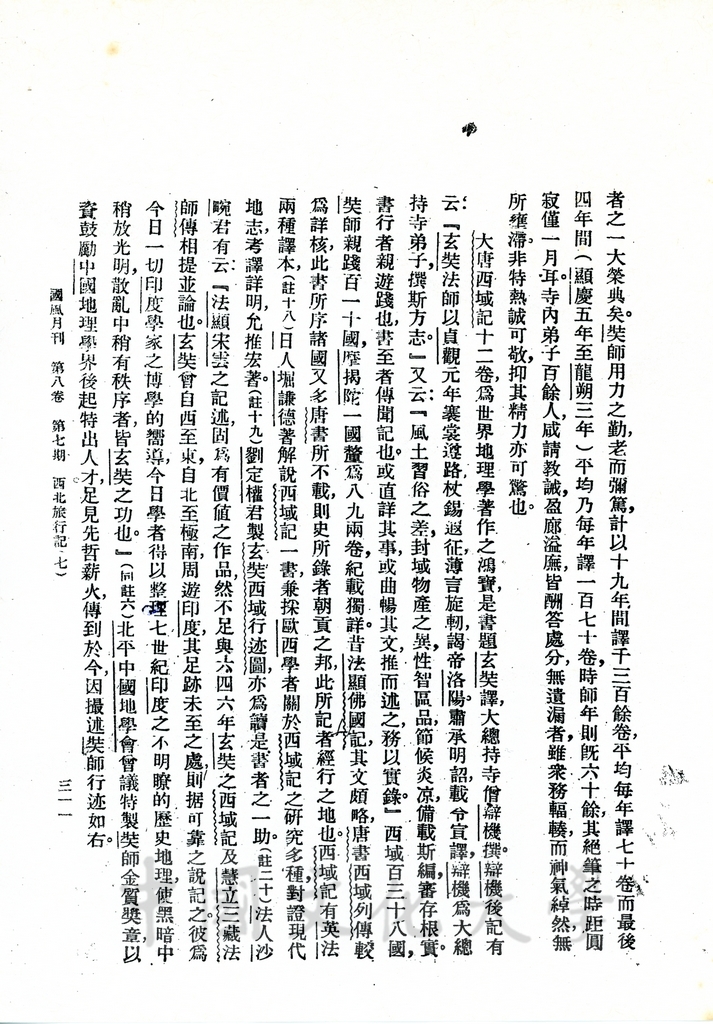 者之一大榮典矣。奘師用力之勤老而彌篤計以十九年間譯千三百餘卷平均每年譯七十卷而最後
四年間(顯慶五年至龍朔三年)平均乃每年譯一百七十卷時師年則旣六十餘其絕筆之時距圓
寂僅一月耳寺內弟子百餘人咸請敎誡盈廊溢廡皆酬答處分無遺漏者雖衆務輻輳而神氣綽然無
所壅滯非特熱誠可敬抑其精力亦可驚也。
大唐西域記十二卷爲世界地理學著作之鴻寶是書題玄奘譯大總持寺僧辯機撰辯機後記有
云:『玄奘法師以貞觀元年褰裳遵路杖錫遐征薄言旋軔謁帝洛陽肅承明詔載令宣譯辯機爲大總
持寺弟子撰斯方志。』又云:『風土習俗之差封域物產之異性智區品節候炎凉備載斯編審存根實
書行者親遊踐也書至者傳聞記也或直詳其事或曲暢其文推而述之務以實錄。』西域百三十八國
奘師親踐百一十國摩揭陀一國釐爲八九兩卷紀載獨詳昔法顯佛國記其文頗略唐書西域列傳較
爲詳核此書所序諸國又多唐書所不載則史所錄者朝貢之邦此所記者經行之地也西域記有英法
兩種譯本(註十八)日人堀謙德著解說西域記一書兼採歐西學者關於西域記之研究多種對證現代
地志考譯詳明允推宏著。(註十九)劉定權君製玄奘西域行迹圖亦爲讀是書者之一助(註二十)法人沙
畹君有云:『法顯宋雲之記述固爲有價値之作品然不足與六四六年玄奘之西域記及慧立三藏法
師傳相提並論也。玄奘曾自西至東自北至極南周遊印度其足跡未至之處則据可靠之說記之彼爲
今日一切印度學家之博學的嚮導今日學者得以整理七世紀印度之不明瞭的歷史地理使黑暗中
稍放光明散亂中稍有秩序者皆玄奘之功也。』(同註六)北平中國地學會曾議特製奘師金質奬章以
資鼓勵中國地理學界後起特出人才足見先哲薪火傳到於今因撮述奘師行迹如右。
國風月刊 第八卷 第七期 西北旅行記(七)
三一一
中國文化大學